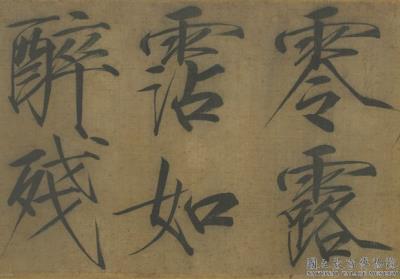 零露
霑如
醉残
國立故宮博物院
NATIONAL PALACE MUSEUM